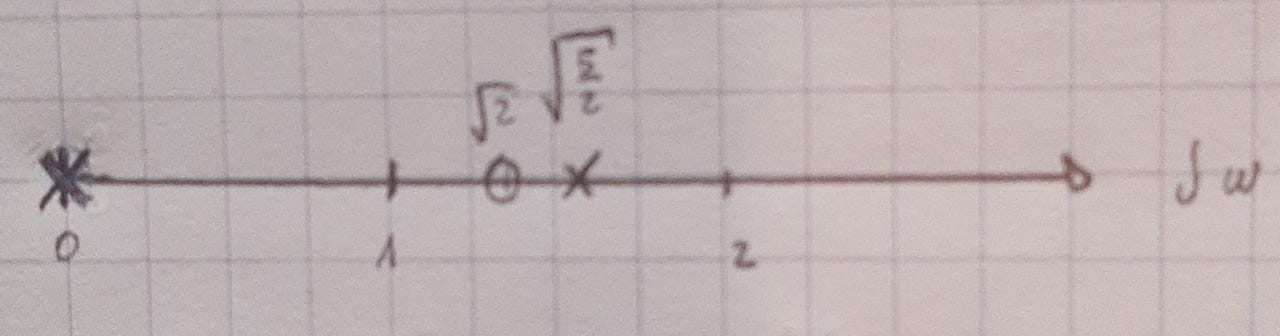 √2 √(5/2)
jω
0 1 2